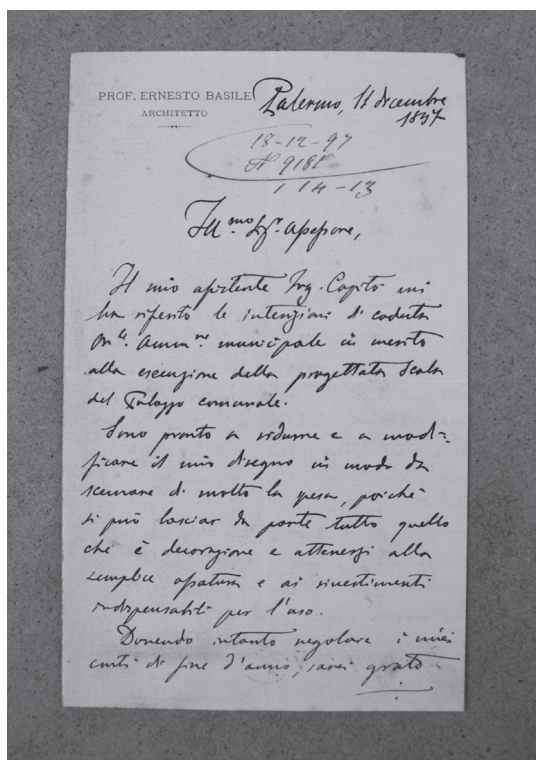 PROF. ERNESTO BASILE
ARCHITETTO
Palermo, 11 dicembre
1897
18-12-97
N 9181
1 14-13
Ill.mo Sigr. Assessore,
Il mio assistente Ing. Capitò mi
ha riferito le intenzioni di codesta
On.le Ammne municipale in merito
alla esecuzione della progettata Scala
del Palazzo comunale.
Sono pronto a ridurre e a modi=
ficare il mio disegno in modo da
scemare di molto la spesa, poichè
si può lasciar da parte tutto quello
che è decorazione e attenersi alla
semplice ossatura e ai rivestimenti
indispensabili per l'uso.
Dovendo intanto regolare i miei
conti di fine d'anno, sarei grato